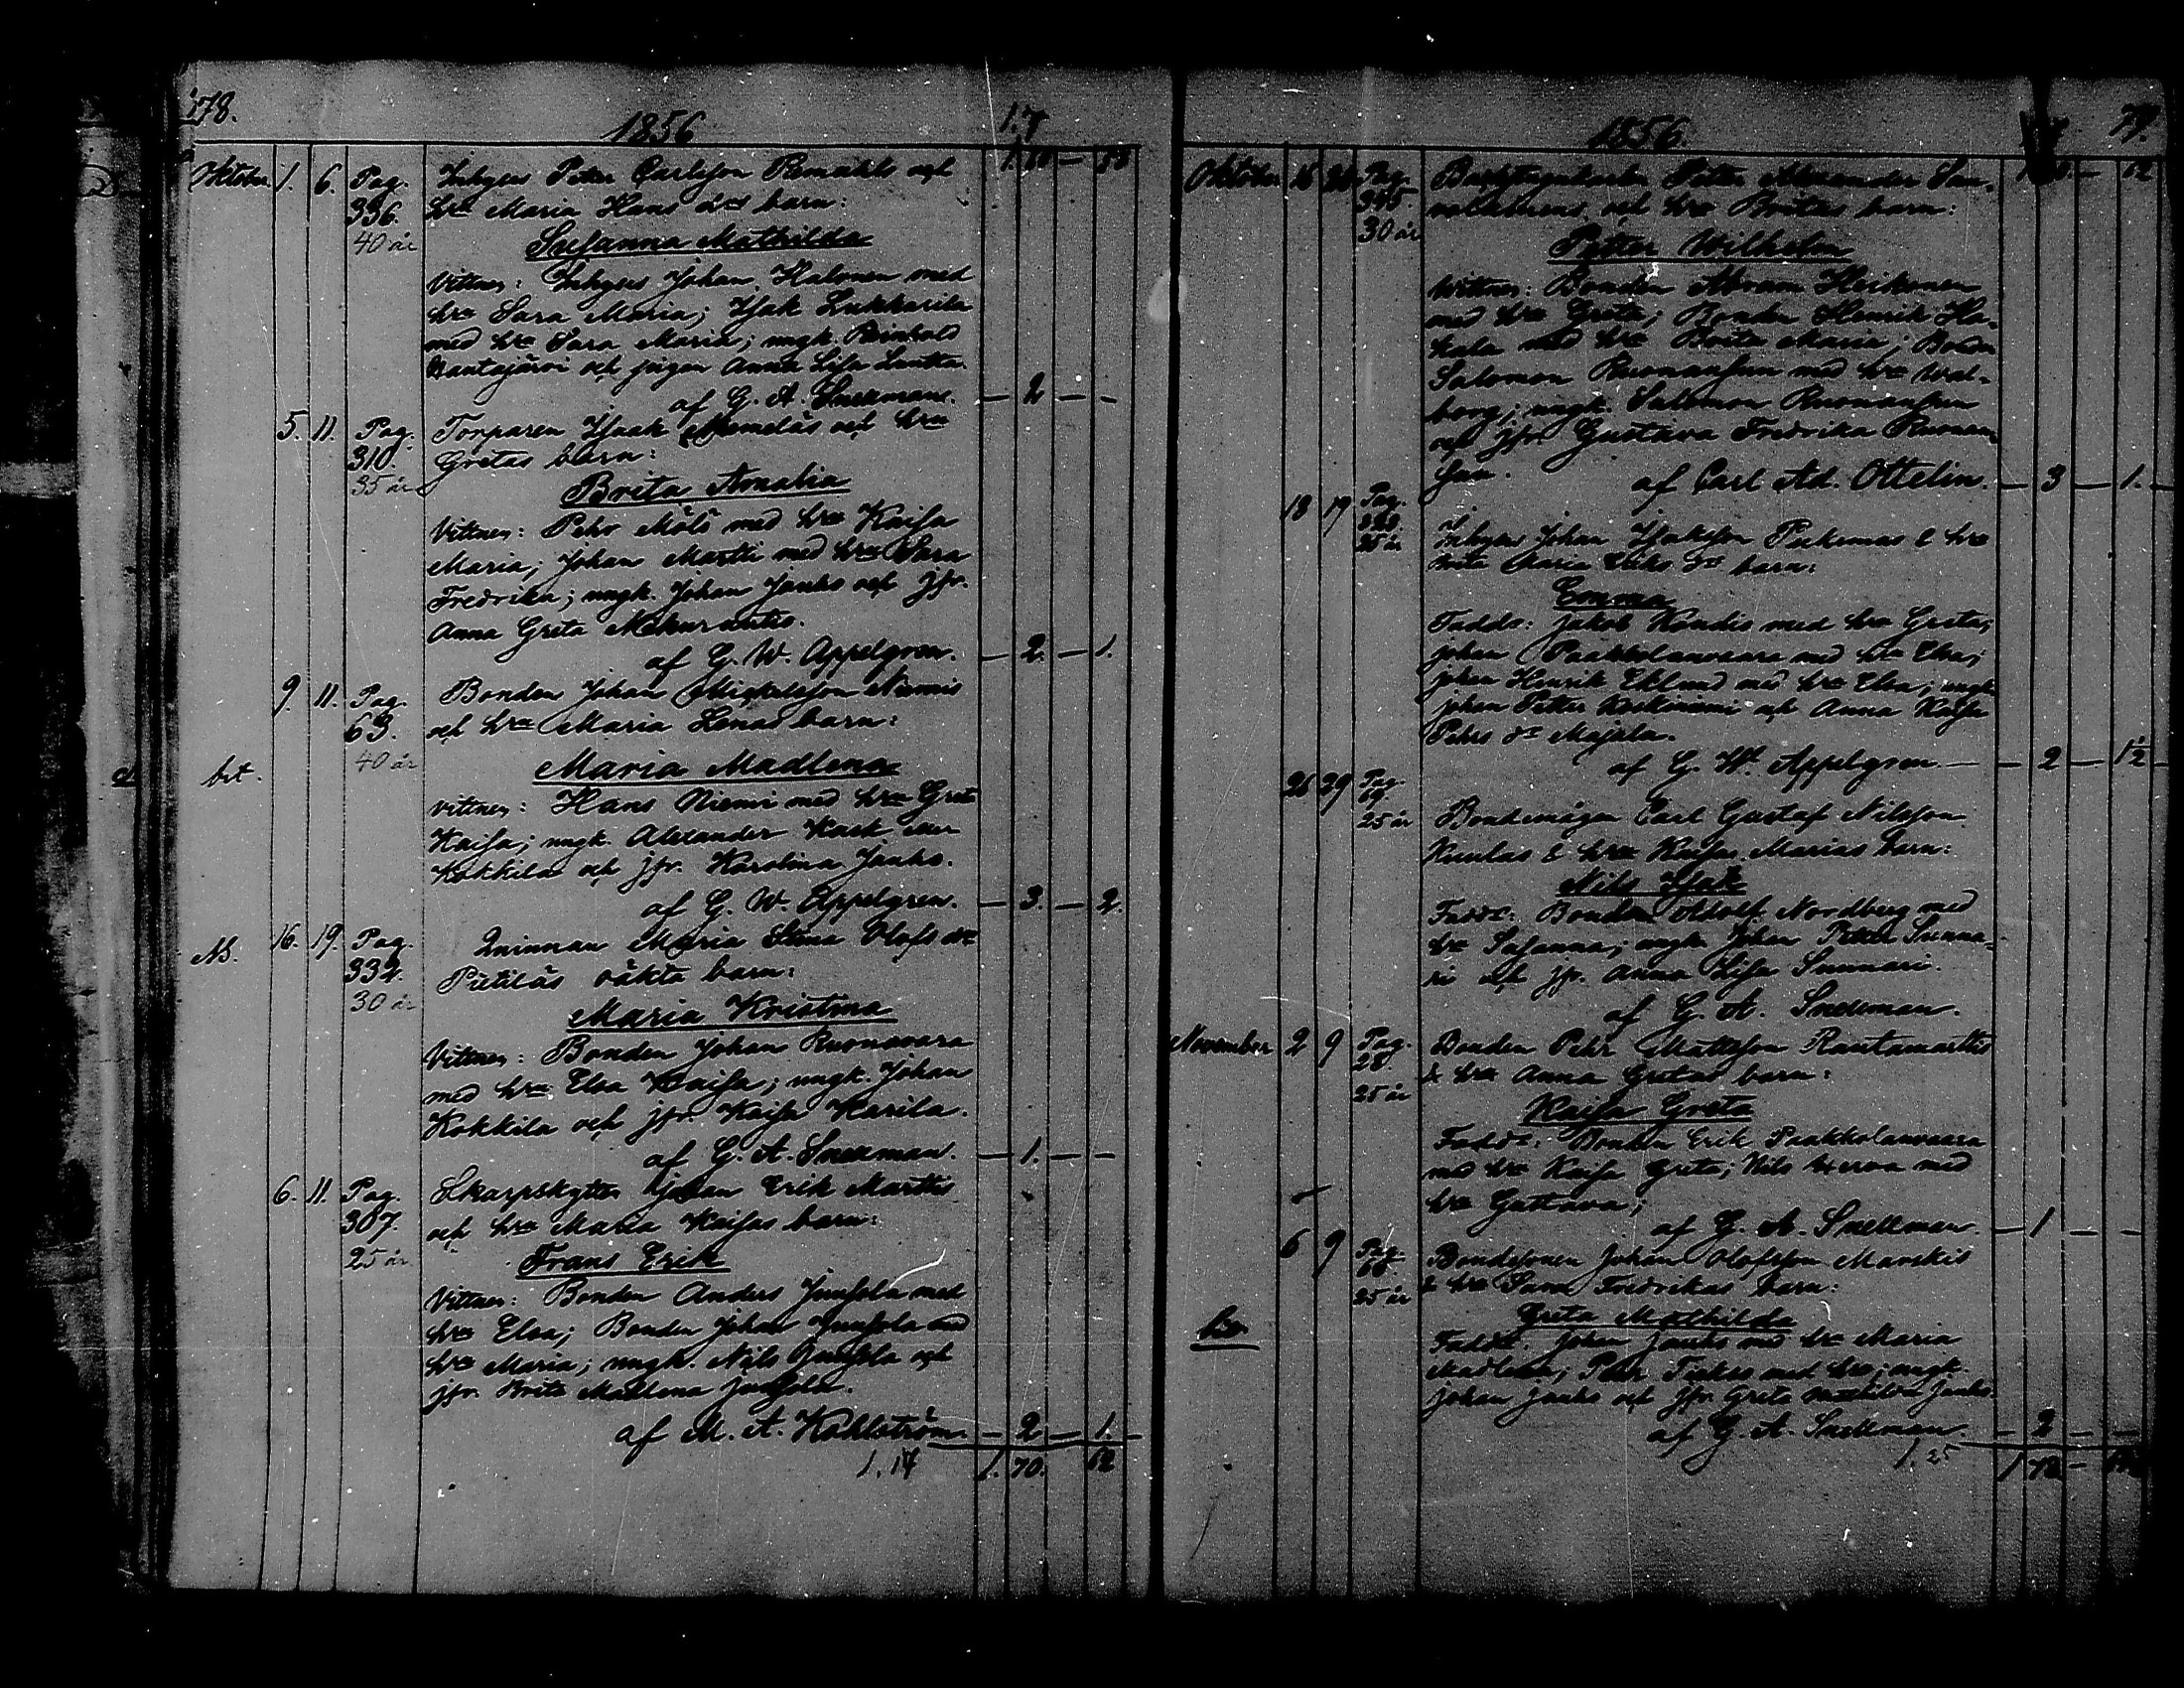 178.
1856
1.7
Oktober 1. 6. Pag. 336. 40 år
Inhyses Peter Carlsson och
hru Maria Hans drs barn:
Susanna Mathilda
Vittnen: Inhyses Johan Halonen med
hru Sara Maria; Isak Lukkarila
med hru Sara Maria; ungk. Reinhold
Rantajärvi och pigan Anna Lisa
af G. A. Snellman. — 2 — —
5. 11. Pag. 310. 35 år
Torparen Isaak och hru
Gretas barn:
Brita Amalia
Vittnen: Pehr med hru Kaisa
Maria; Johan Martti med hru Sara
Fredrika; ungk. Johan Junks och jfr.
Anna Greta
af G. W. Appelgren. — 2. — 1.
9. 11. Pag. 63. 40 år
Bonden Johan Michelsson Niemis
och hru Maria Lenas barn:
Maria Madlena
Vittnen: Hans Niemi med hru Greta
Kaisa; ungk. Alexander
Kokkila och jfr. Karolina Junks.
af G. W. Appelgren. — 3. — 2.
16. 19. Pag. 332. 30 år
Qvinnan Maria Stina Olofs dr
Pietiläs oäkta barn:
Maria Kristina
Vittnen: Bonden Johan Ruonavara
med hru Elsa Kaisa; ungk. Johan
Kokkila och jfr. Kaisa Harila.
af G. A. Snellman. — 1. — —
6. 11. Pag. 307. 25 år
Skarpskytten Johan Erik Marttis
och hru Maria Kaisas barn:
Frans Erik
Vittnen: Bonden Anders Junsola med
hru Elsa; Bonden Johan Junsola med
hru Maria; ungk. Nils Junsola och
jfr. Brita Madlena Junsola.
af M. A. Kohlström — 2 — 1.
1.17 1. 70. 62
1856.
79.
Oktober 16 Pag. 395 30 år
Petter Alexander
och hru Britas barn:
Petter Wilhelm
Wittnen: Bonden Abram Heikonen
med hru Greta; Bonden Henrik Ha-
kala med hru Brita Maria; Bonden
Salomon Ruonansuu med hru Wal-
borg; ungk. Salomon Ruonansuu
och jfr. Gustava Fredrika Ruonan-
suu.
af Carl Ad. Ottelin. — 3 — 1.
18 19 Pag. 25 år
Inhyses Johan Isaksson & hru
Brita Maria Eriks dr barn:
Emma
Faddr: Jakob Kandis med hru Greta;
Johan Paakkolanvaara med hru Elsa;
Johan Henrik Eklund med hru Elsa; ungk.
Johan Petter Keskiniemi och Anna Kaisa
Pehrs dr Majala.
af G. W. Appelgren — 2 — 1½
26 29 Pag. 69. 25 år
Bondemågen Carl Gustaf Nilsson
Kuulas & hru Kaisa Marias barn:
Nils Isak
Faddr: Bonden Adolf Nordberg med
hru Susanna; ungk. Johan Petter Sunna-
ri och jfr. Anna Lisa Sunnari.
af G. A. Snellman.
November 2 9 Pag. 28. 25 år
Bonden Pehr Mattsson Rantamarttis
& hru Anna Gretas barn:
Kaisa Greta
Faddr: Bonden Erik Paakkolanvaara
med hru Kaisa Greta; Nils med
hru Gustava;
af G. A. Snellman. — 1 — —
6 9 Pag. 68. 25 år
Bondesonen Johan Olofsson Marskis
& hru Sara Fredrikas barn:
Greta Mathilda
Faddr: Johan Junks med hru Maria
Madlena; Pehr med hru; ungk.
Johan Junks och jfr. Greta Mathilda Junks.
af G. A. Snellman. — 2 — —
1.25